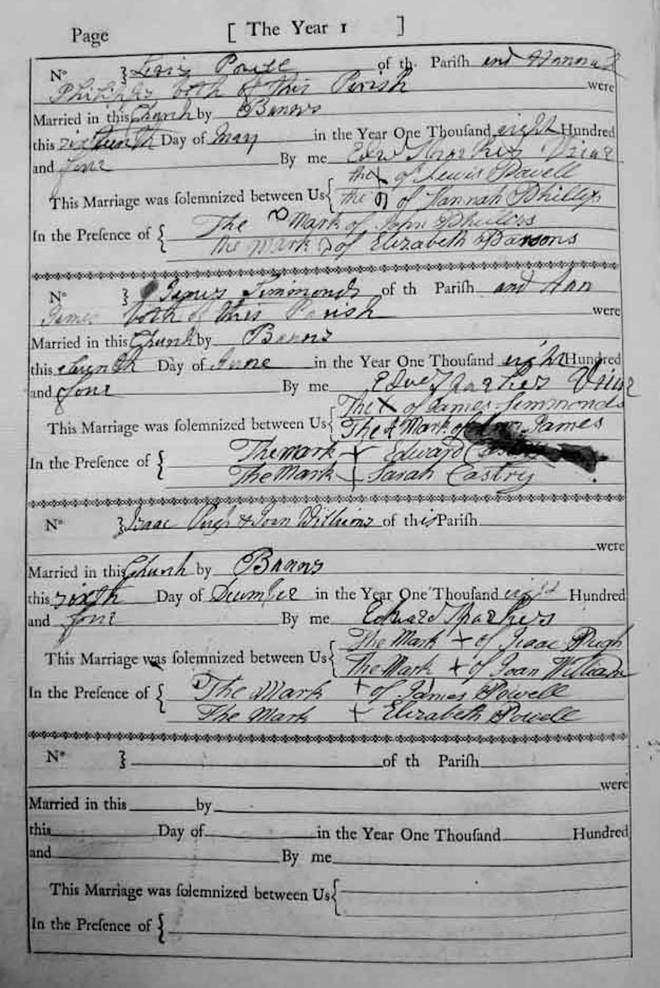 Page [ The Year 1 ]
No } Lewis Powell of th Parish and Hannah
Phillips both of this Parish were
Married in this Church by Banns
this sixteenth Day of May in the Year One Thousand eight Hundred
and four By me Edwd Sparkes Vicar
This Marriage was solemnized between Us { the X of Lewis Powell
the of Hannah Phillips
In the Presence of { The Mark of John
the Mark of Elizabeth Parsons
No } James Simmonds of th Parish and Ann
James both of this Parish were
Married in this Church by Banns
this Day of June in the Year One Thousand eight Hundred
and four By me Edwd Sparkes Vicar
This Marriage was solemnized between Us { The X of James Simmonds
The Mark of James
In the Presence of { The mark + Edward
The Mark + Sarah Castry
No } Isaac Pugh & Joan Williams of this Parish
were
Married in this Church by Banns
this sixth Day of in the Year One Thousand eight Hundred
and four By me Edward Sparkes
This Marriage was solemnized between Us { The Mark + of Isaac Pugh
The Mark + of Joan Williams
In the Presence of { The Mark + of James Powell
The Mark + Elizabeth Powell
No } of th Parish
were
Married in this by
this Day of in the Year One Thousand Hundred
and By me
This Marriage was solemnized between Us {
In the Presence of {